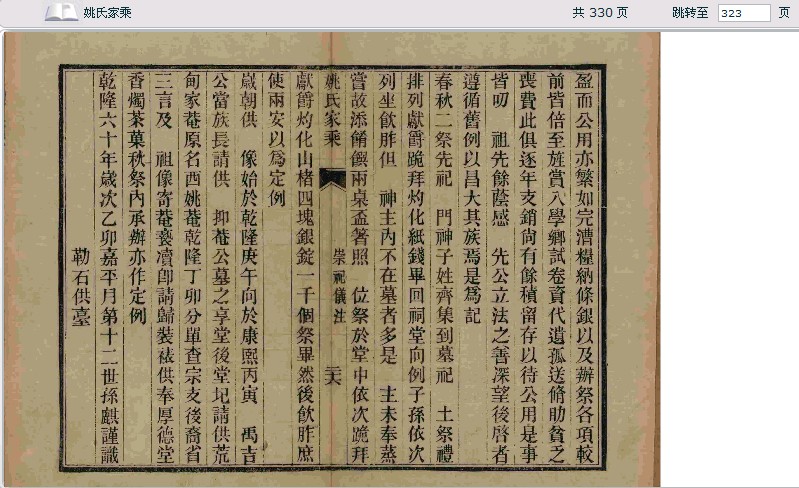 姚氏家乘
共 330 页
跳转至 323 页
盈而公用亦繁如完漕糧納條銀以及辦祭各項較
前皆倍至旌賞入學鄉試卷資代遺孤送脩助貧乏
喪費此俱逐年支銷尚有餘積留存以待公用是事
皆叨 祖先餘蔭感 先公立法之善深望後啓者
遵循舊例以昌大其族焉是爲記
春秋二祭先祀 門神子姓齊集到墓祀 土祭禮
排列獻爵跪拜灼化紙錢畢回祠堂向例子孫依次
列坐飲胙但 神主內不在墓者多是 主未奉蒸
嘗故添餚饌兩桌盃箸照 位祭於堂中依次跪拜
姚氏家乘 崇祀儀注 二六
獻爵灼化山楮四塊銀錠一千個祭畢然後飲胙庶
使兩安以爲定例
歲朝供 像始於乾隆庚午向於康熙丙寅 禹吉
公當族長請供 抑菴公墓之享堂後堂圮請供荒
甸家菴原名西姚菴乾隆丁卯分單查宗支後裔省
三言及 祖像寄菴褻瀆卽請歸裝裱供奉厚德堂
香燭茶菓秋祭內承辦亦作定例
乾隆六十年歲次乙卯嘉平月第十二世孫麒謹識
勒石供臺